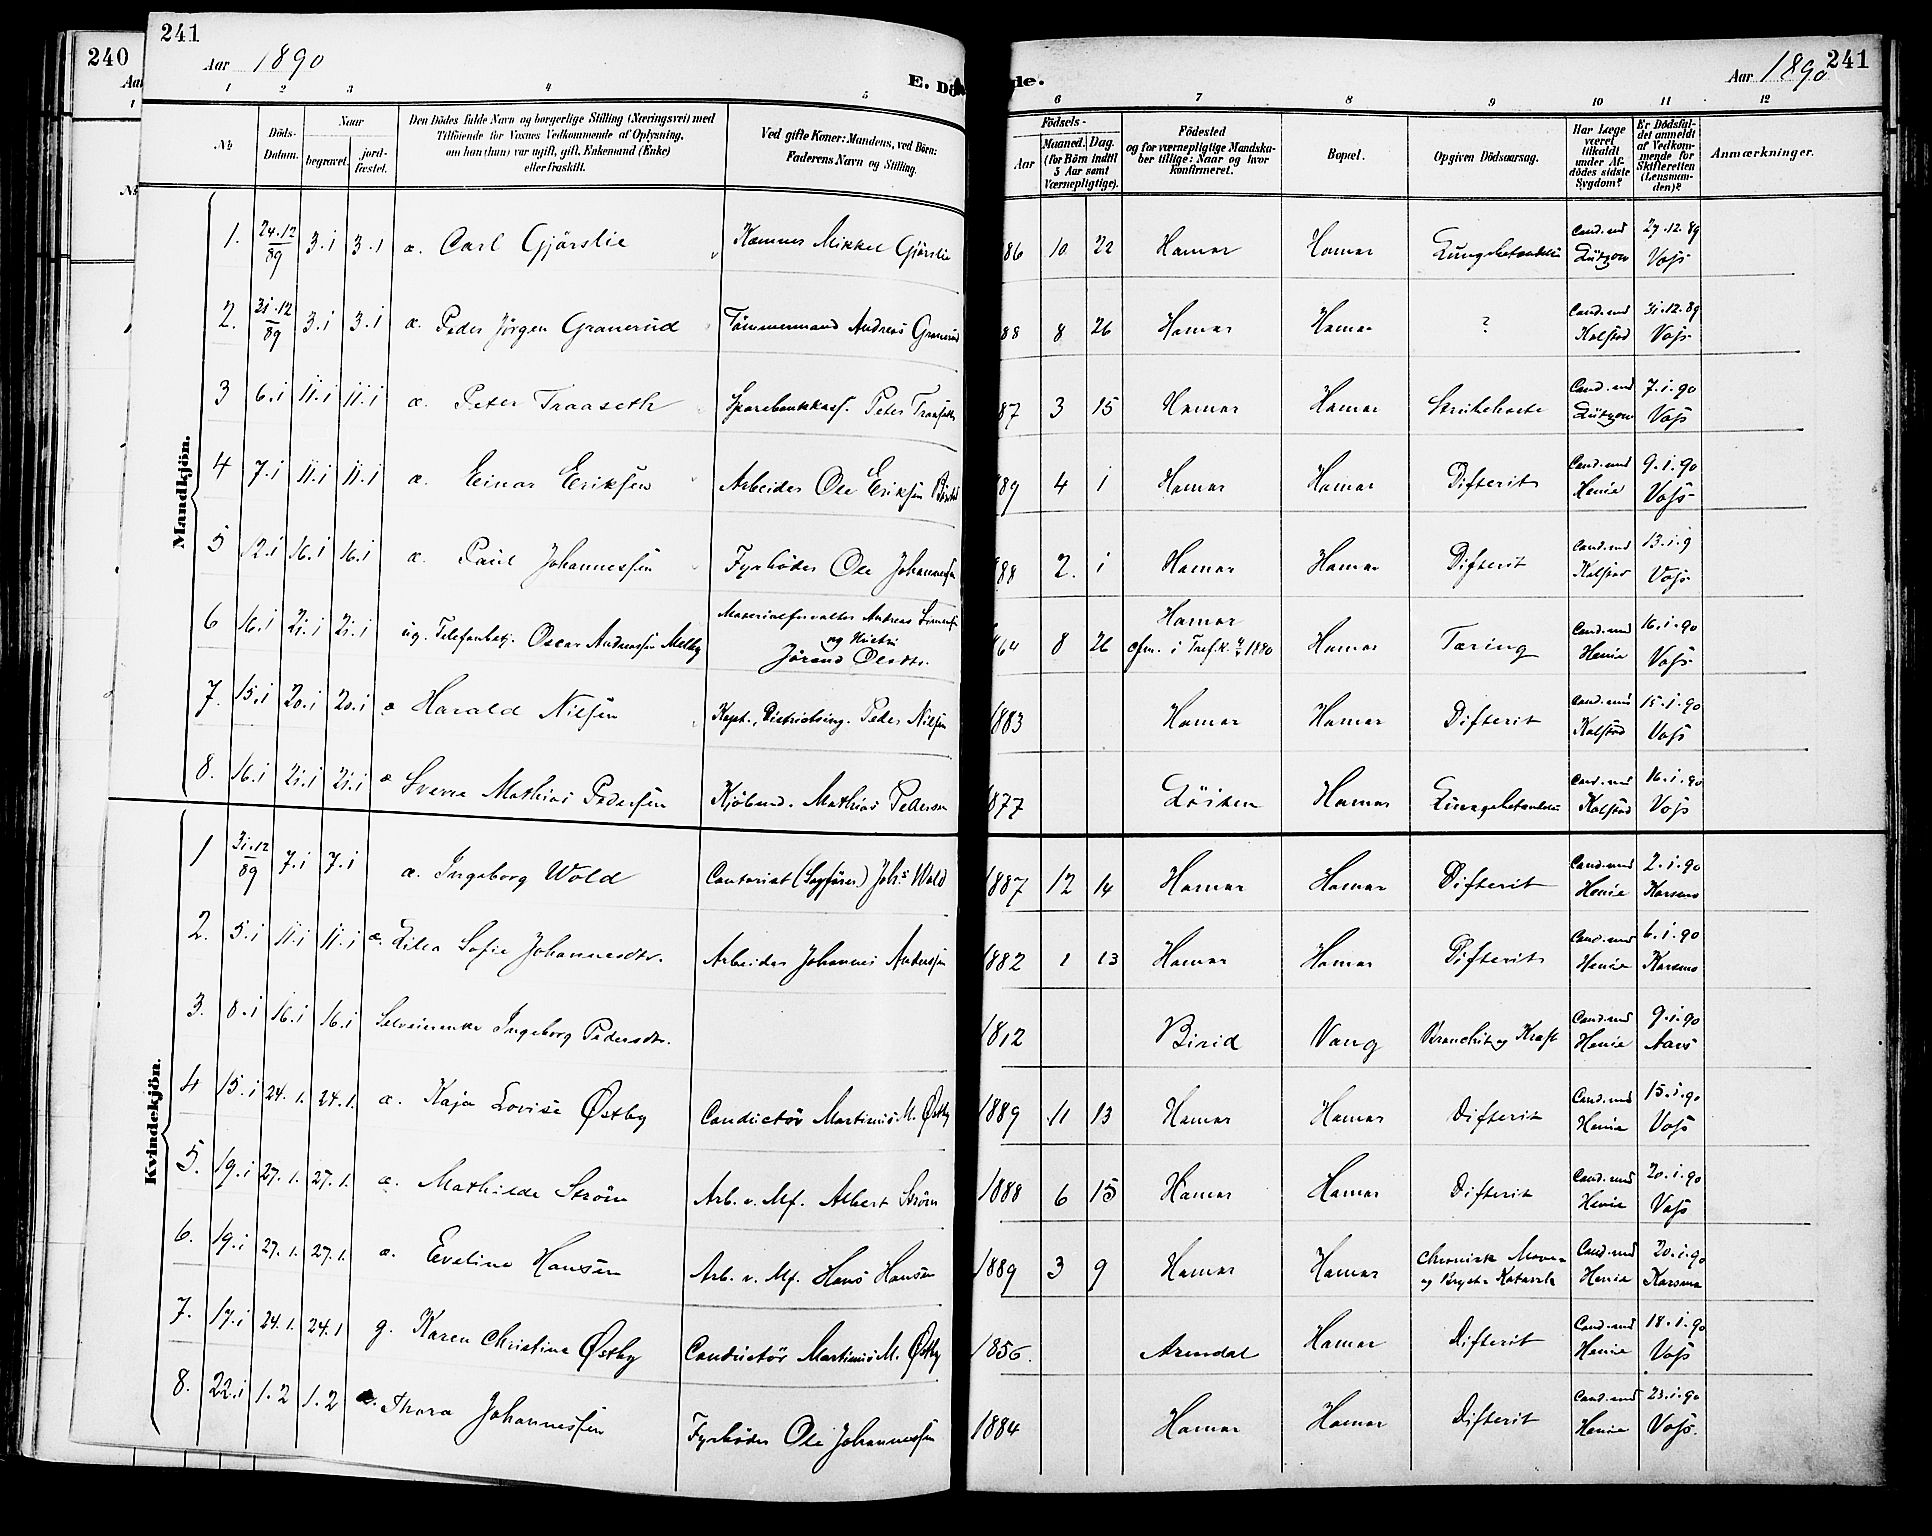 240
Aa
1
№
241
Aar 1890
E. Dö
de.
Aar 1890
241
1 2 3 4 5 6 7 8 9 10 11 12
№
Döds-Datum.
Naar
begravet.
jord-fæstet.
Den Dödes fulde Navn og borgerlige Stilling (Næringsvei) med
Tilföiende for Voxnes Vedkommende af Oplysning,
om han (hun) var ugift, gift, Enkemand (Enke)
eller fraskilt.
Ved gifte Koner: Mandens, ved Börn:
Faderens Navn og Stilling.
Födsels-
Aar
Maaned. Dag.
(for Börn indtil
5 Aar samt
Værnepligtige).
Födested
og for værnepligtige Mandska-
ber tillige: Naar og hvor
konfirmeret.
Bopæl.
Opgiven Dödsaarsag.
Har Læge
været
tilkaldt
under Af-
dödes sidste
Sygdom?
Er Dödsfal-
det anmeldt
af Vedkom-
mende for
Skifteretten
(Lensman-
den)?
Anmærkninger.
Mandkjön.
1. 24.12/89 3.i 3.i æ. Carl Gjörslie Kæmner Mikkel Gjörslie 86 10 22 Hamar Hamar Lungebetændelse Cand.med Lützow 27.12.89 Vojs
2. 31.12/89 3.i 3.i æ. Peder Jørgen Granerud Tömmermand Andreas Granerud 88 8 26 Hamar Hamar ? Cand.med Kolstad 31.12.89 Vojs
3 6.i 11.i 11.i æ. Peter Traaseth Sparebankkass. Peter Traaseth 87 3 15 Hamar Hamar Strubehoste Cand.med Lützow 7.i.90 Vojs
4 7.i 11.i 11.i æ. Einar Eriksen Arbeider Ole Eriksen 89 4 1 Hamar Hamar Difterit Cand.med Henie 9.i.90 Vojs
5 12.i 16.i 16.i æ. Paul Johannessen Fyrbøder Ole Johannessen 88 2. i Hamar Hamar Difterit Cand.med Kolstad 13.i.9 Vojs
6 16.i 21.i 21.i ug. Telefonbetj. Oscar Andreassen Melby Materialforvalter Andreas
og Hustru
Jørand Olsdtr. 64 8 26 Hamar
i 1880 Hamar Tæring Cand.med Henie 16.i.90 Vojs
7. 15.i 20.i 20.i æ Harald Nilsen Kapt., Districtsing. Peder Nilsen 1883 Hamar Hamar Difterit Cand.med Kolstad 15.i.90 Vojs
8. 16.i 21.i 21.i æ Sverre Mathias Pedersen Kjöbmd. Mathias Pedersen 1877 Löiten Hamar Lungebetændelse Cand.med Kolstad 16.i.90 Vojs
Kvindekjön.
1 31.12/89 7.i 7.i æ. Ingeborg Wold Contorist (Sagfører) Johs Wold 1887 12 14 Hamar Hamar Difterit Cand.med Henie 2.i.90 Karsmo
2. 5.i 11.i 11.i æ. Lilla Sofie Johannesdtr. Arbeider Johannes Anderssen 1882 1 13 Hamar Hamar Difterit Cand.med Henie 6.i.90 Karsmo
3. 8.i 16.i 16.i Selveierenke Ingeborg Pedersdtr. 1812 Birid Vang Bronchit og Kræft Cand.med Henie 9.i.90 Aars
4 15.i 24.1. 24.1. æ. Kaja Lovise Østby Conductör Martinius M. Østby 1889 11 13 Hamar Hamar Difterit Cand.med Henie 15.i.90 Vojs
5. 19.i 27.1. 27.1. æ. Mathilde Strøm Arb. v. Mf. Albert Strøm 1888 6 15 Hamar Hamar Difterit Cand.med Henie 20.i.90 Vojs
6. 19.i 27.1. 27.1. æ. Eveline Hansen Arb. v. Mf. Hans Hansen 1889 3 9 Hamar Hamar Chronisk Mave-
og Bryst-Katarrh Cand.med Henie 20.i.90 Karsmo
7. 17.i 24.1. 24.1 g. Karen Christine Østby Conductör Martinius M. Østby 1856. Arendal Hamar Difterit Cand.med Henie 18.i.90 Vojs
8. 22.i 1.2 1.2 æ. Thora Johannessen Fyrbøder Ole Johannessen 1884 Hamar Hamar Difterit Cand.med Henie 23.i.90 Vojs.